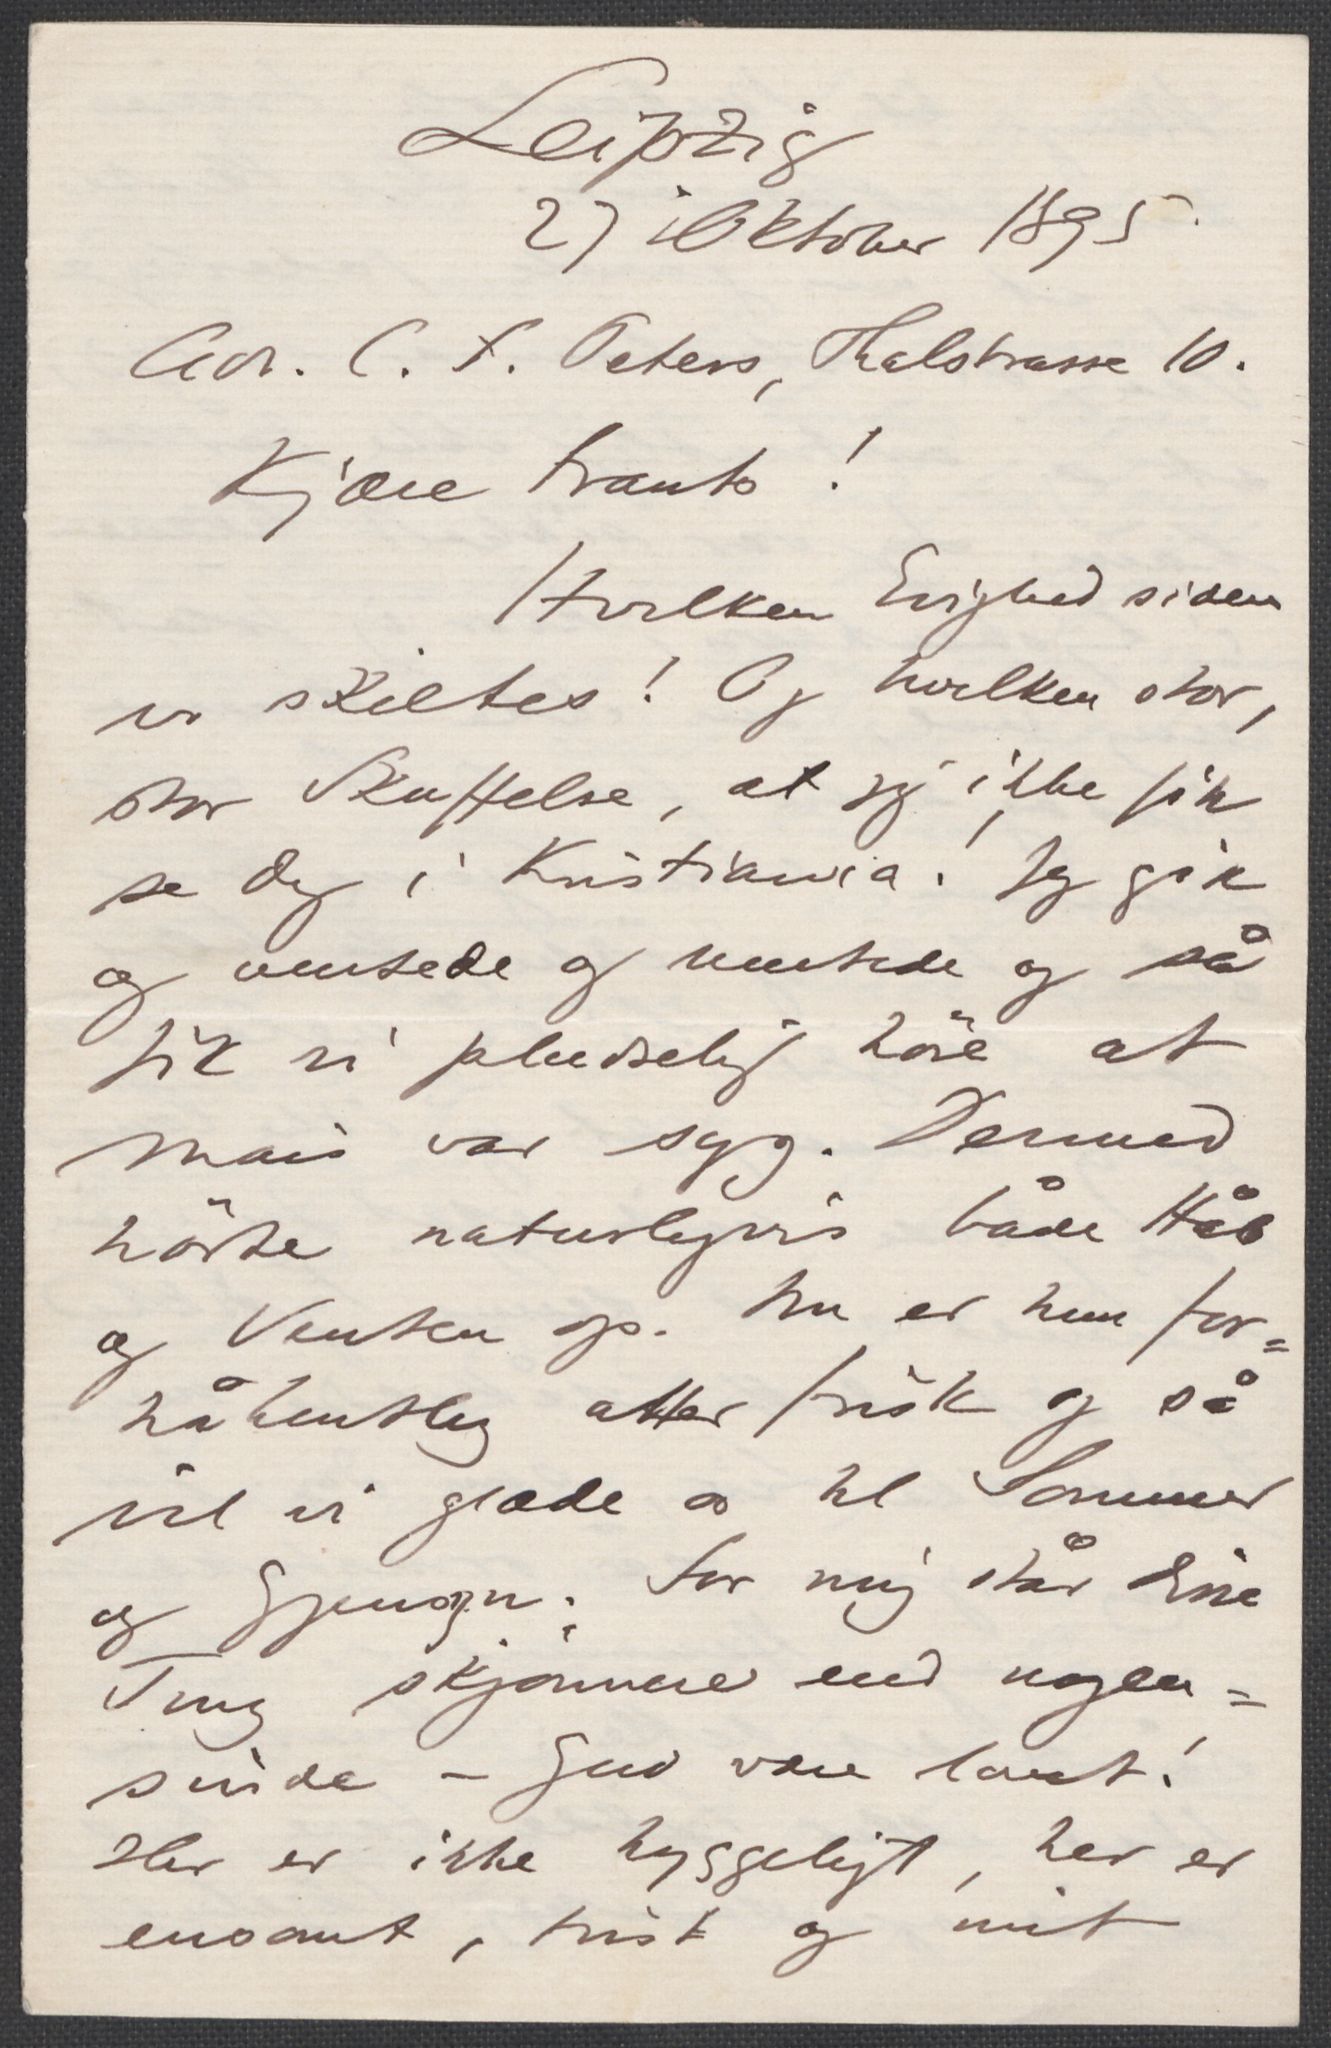 Leipzig
27 Oktober 1895
Adr. C. F. Peters, Thalstrasse 10.
Kjære Frants!
Hvilken Evighed siden
vi skiltes! Og hvilken stor,
stor Skuffelse, at jeg ikke fik
se Dig i Kristiania! Jeg gik
og ventede og ventede og så
fik vi pludselig höre at
Mais var syg. Dermed
hörte naturligvis både Håb
og Venten op. Nu er hun for=
håbentlig atter frisk og så
vil vi glæde os til Sommer
og Gjensyn. For mig står disse
Ting skjönnere end nogen=
sinde – Gud være lovet!
Her er ikke hyggeligt, her er
ensomt, trist og mit